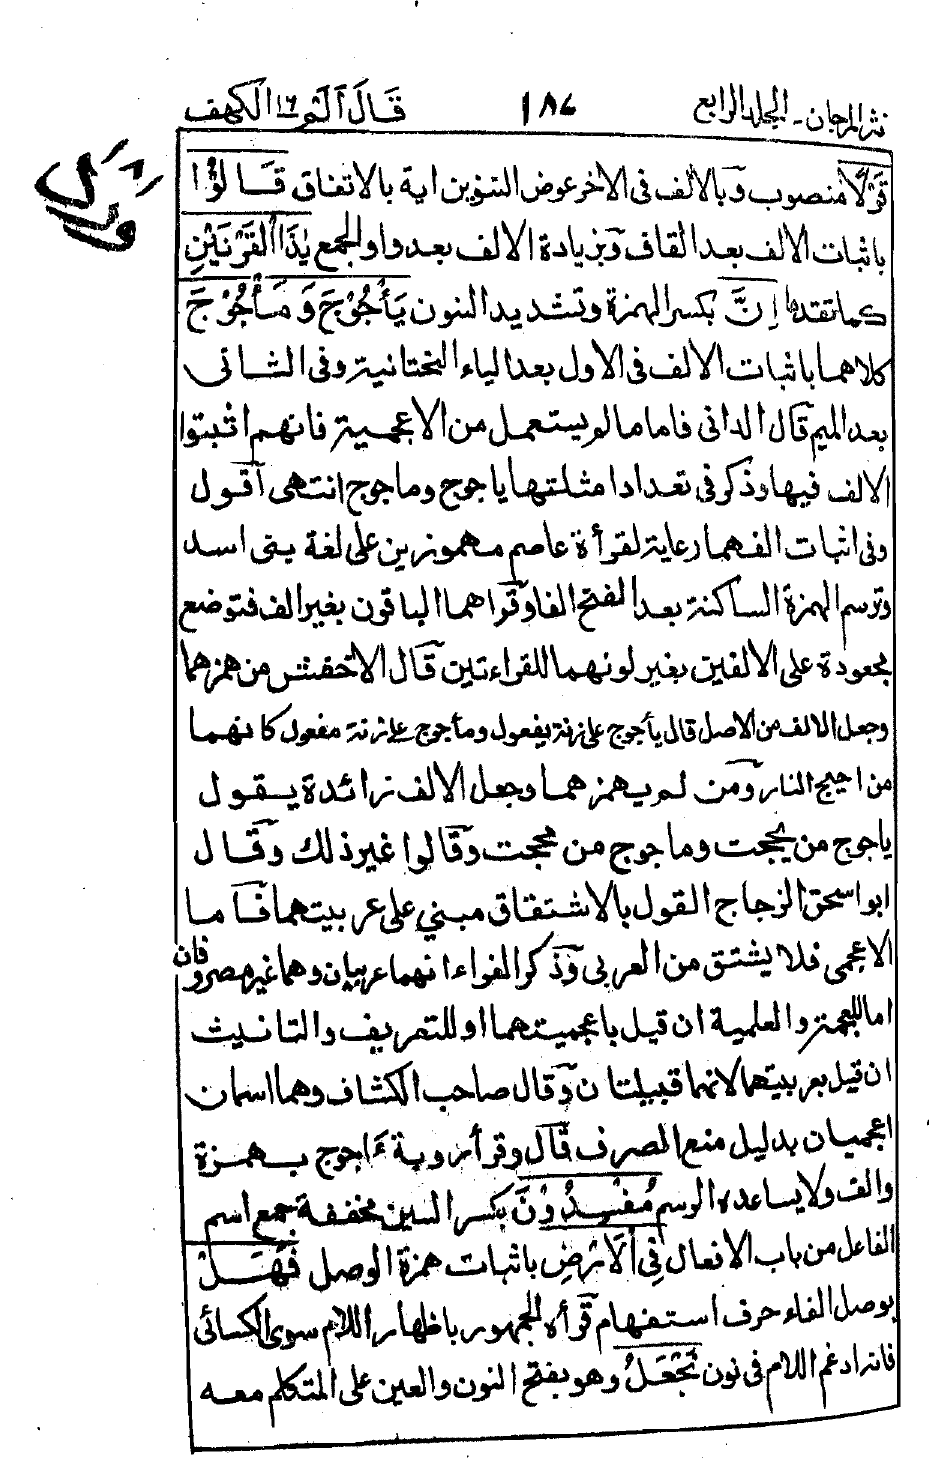 نثر المرجان - المجلد الرابع ١٨٤ قَالَ أَلَمْ ١٦ الكهف
قَوْلًا منصوب وبالالف فى الاخر عوض التنوين اية بالاتفاق قَالُوْا
باثبات الالف بعد القاف وبزيادة الالف بعد واو الجمع يٰذَا الْقَرْنَيْنِ
كما تقدم اِنَّ بكسر الهمزة وتشديد النون يَأْجُوْجَ وَمَأْجُوْجَ
كلاهما باثبات الالف فى الاول بعد الياء التحتانية وفى الثانى
بعد الميم قال الدانى فاما ما لم يستعمل من الاعجمية فانهم اثبتوا
الالف فيها وذكر فى تعداد امثلتها ياجوج وماجوج انتهى اقول
وفى اثبات الفهما رعاية لقرأة عاصم مهموزين على لغة بنى اسد
وترسم الهمزة الساكنة بعد الفتح الفا وقراهما الباقون بغير الف فتوضع
مجعودة على الالفين بغير لونهما للقراءتين قال الاخفش من همزهما
وجعل الالف من الاصل قال يأجوج على زنة يفعول ومأجوج على زنة مفعول كانهما
من اجيج النار ومن لم يهمزهما وجعل الالف زائدة يقول
ياجوج من يججت وماجوج من مججت وقالوا غير ذلك وقال
ابو اسحق الزجاج القول بالاشتقاق مبني على عربيتهما فاما
الاعجمى فلا يشتق من العربى وذكر الفواء انهما عربيان وهما غير مصروفان
اما للعجمة والعلمية ان قيل باعجميتهما او للتعريف والتانيث
ان قيل بعربيتهما لانهما قبيلتان وقال صاحب الكشاف وهما اسمان
اعجميان بدليل منع الصرف قال وقرأ رؤبة ءاجوج بهمزة
والف ولا يساعده الرسم مُفْسِدُوْنَ بكسر السين مخففة جمع اسم
الفاعل من باب الافعال فِى الْاَرْضِ باثبات همزة الوصل فَهَلْ
بوصل الفاء حرف استفهام قرأه الجمهور باظهار اللام سوى الكسائى
فانه ادغم اللام فى نون نَجْعَلُ وهو بفتح النون والعين على المتكلم معه